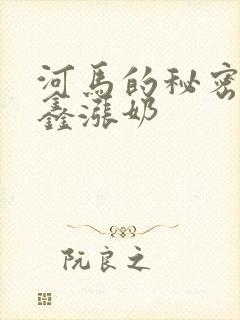 河马的秘密
鑫涨奶
阮良之